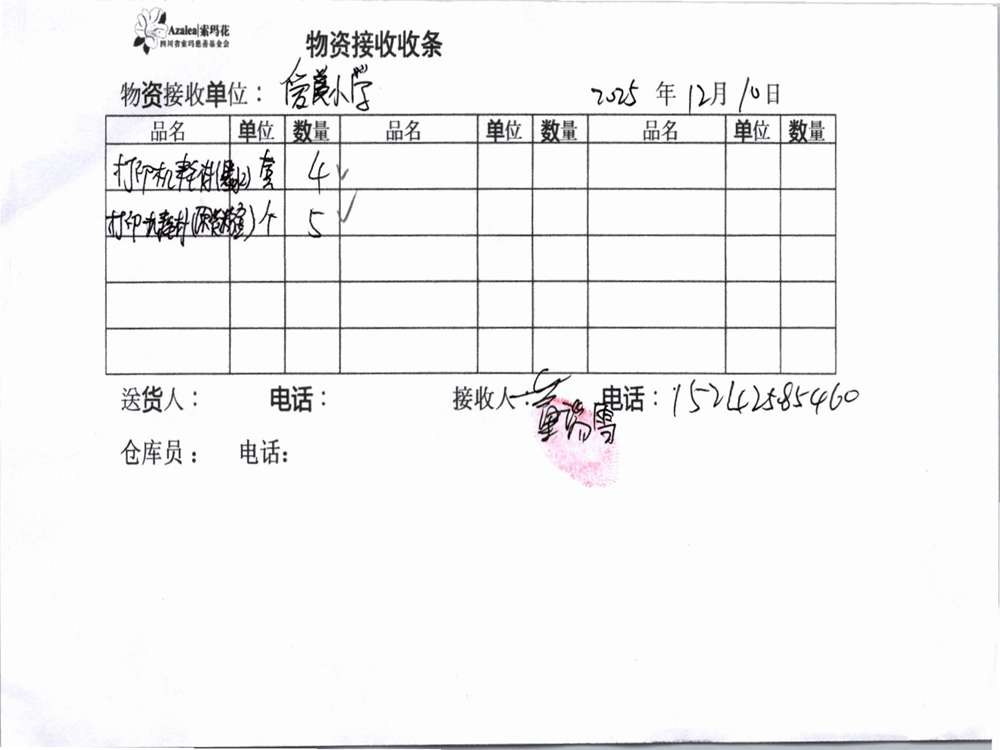 Azalea|索玛花
四川省索玛慈善基金会
物资接收收条
物资接收单位： 小学 2025 年 12月 10日
品名 单位 数量 品名 单位 数量 品名 单位 数量
打印机耗材(墨水) 套 4 ✓
打印机耗材 个 5 ✓
送货人： 电话： 接收人： 电话：15212585460
仓库员： 电话：